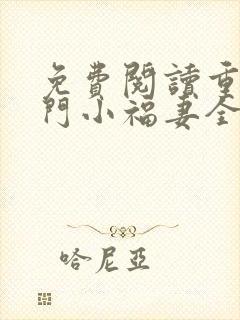 免費閱讀重
門小福妻全
哈尼亞